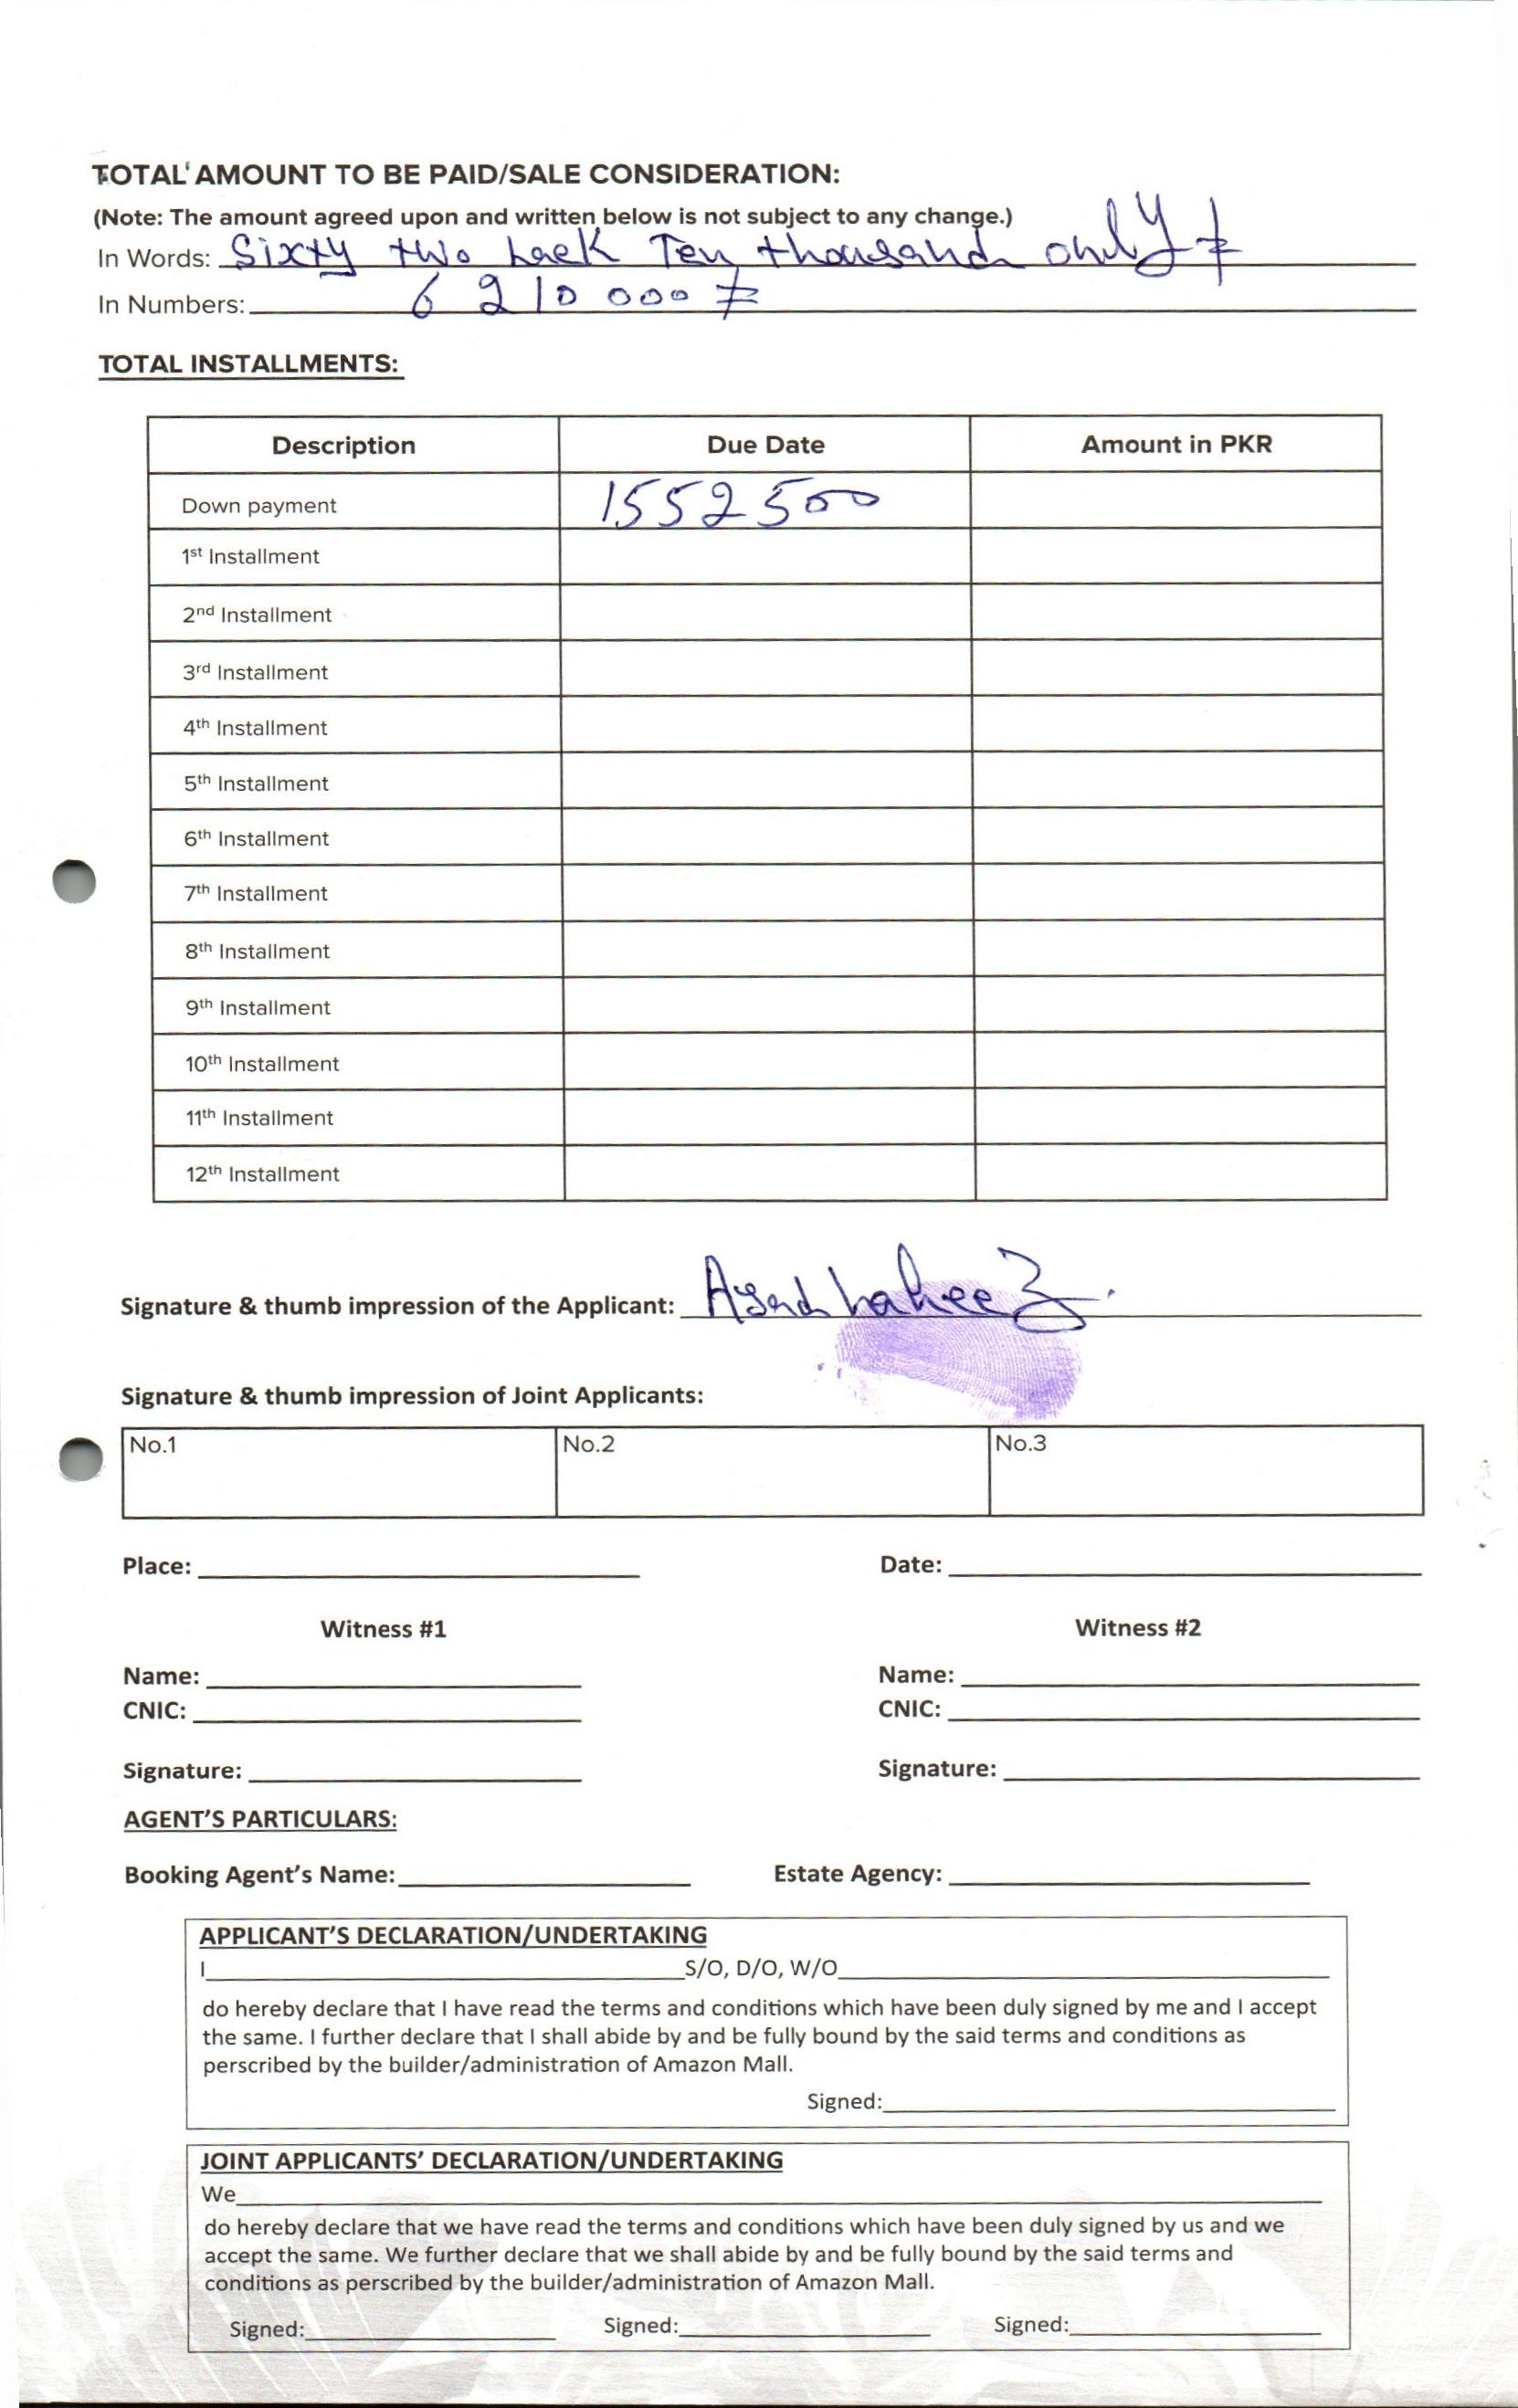 TOTAL AMOUNT TO BE PAID/SALE CONSIDERATION:
(Note: The amount agreed upon and written below is not subject to any change.)
In Words: Sixty two Lack Ten thousand only
In Numbers: 6210000
TOTAL INSTALLMENTS:
Description Due Date Amount in PKR
Down payment 1552500
1st Installment
2nd Installment
3rd Installment
4th Installment
5th Installment
6th Installment
7th Installment
8th Installment
9th Installment
10th Installment
11th Installment
12th Installment
Signature & thumb impression of the Applicant:
Signature & thumb impression of Joint Applicants:
No.1 No.2 No.3
Place: Date:
Witness #1 Witness #2
Name: Name:
CNIC: CNIC:
Signature: Signature:
AGENT'S PARTICULARS:
Booking Agent's Name: Estate Agency:
APPLICANT'S DECLARATION/UNDERTAKING
I S/O, D/O, W/O
do hereby declare that I have read the terms and conditions which have been duly signed by me and I accept
the same. I further declare that I shall abide by and be fully bound by the said terms and conditions as
perscribed by the builder/administration of Amazon Mall.
Signed:
JOINT APPLICANTS' DECLARATION/UNDERTAKING
We
do hereby declare that we have read the terms and conditions which have been duly signed by us and we
accept the same. We further declare that we shall abide by and be fully bound by the said terms and
conditions as perscribed by the builder/administration of Amazon Mall.
Signed: Signed: Signed: